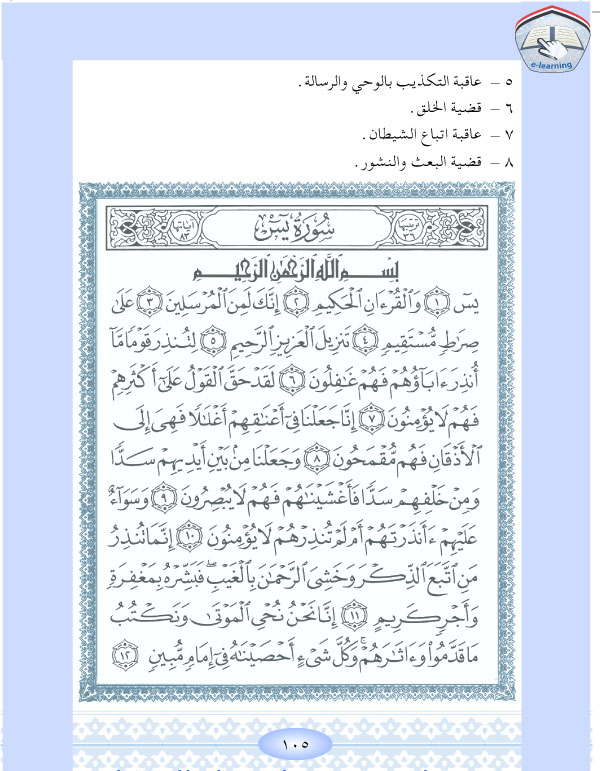 e-learning
٥ – عاقبة التكذيب بالوحي والرسالة .
٦ – قضية الخلق .
٧ – عاقبة اتباع الشيطان .
٨ – قضية البعث والنشور .
ترتيبها ٣٦ سُورَةُ يسٓ آياتها ٨٣
بِسْمِ اللَّهِ الرَّحْمَٰنِ الرَّحِيمِ
يسٓ ١ وَالْقُرْءَانِ الْحَكِيمِ ٢ إِنَّكَ لَمِنَ الْمُرْسَلِينَ ٣ عَلَىٰ
صِرَٰطٍ مُّسْتَقِيمٍ ٤ تَنزِيلَ الْعَزِيزِ الرَّحِيمِ ٥ لِتُنذِرَ قَوْمًا مَّآ
أُنذِرَ ءَابَآؤُهُمْ فَهُمْ غَٰفِلُونَ ٦ لَقَدْ حَقَّ الْقَوْلُ عَلَىٰٓ أَكْثَرِهِمْ
فَهُمْ لَا يُؤْمِنُونَ ٧ إِنَّا جَعَلْنَا فِىٓ أَعْنَٰقِهِمْ أَغْلَٰلًا فَهِىَ إِلَى
الْأَذْقَانِ فَهُم مُّقْمَحُونَ ٨ وَجَعَلْنَا مِنۢ بَيْنِ أَيْدِيهِمْ سَدًّا
وَمِنْ خَلْفِهِمْ سَدًّا فَأَغْشَيْنَٰهُمْ فَهُمْ لَا يُبْصِرُونَ ٩ وَسَوَآءٌ
عَلَيْهِمْ ءَأَنذَرْتَهُمْ أَمْ لَمْ تُنذِرْهُمْ لَا يُؤْمِنُونَ ١٠ إِنَّمَا تُنذِرُ
مَنِ اتَّبَعَ الذِّكْرَ وَخَشِىَ الرَّحْمَٰنَ بِالْغَيْبِ ۖ فَبَشِّرْهُ بِمَغْفِرَةٍ
وَأَجْرٍ كَرِيمٍ ١١ إِنَّا نَحْنُ نُحْىِ الْمَوْتَىٰ وَنَكْتُبُ
مَا قَدَّمُوا۟ وَءَاثَٰرَهُمْ ۚ وَكُلَّ شَىْءٍ أَحْصَيْنَٰهُ فِىٓ إِمَامٍ مُّبِينٍ ١٢
١٠٥